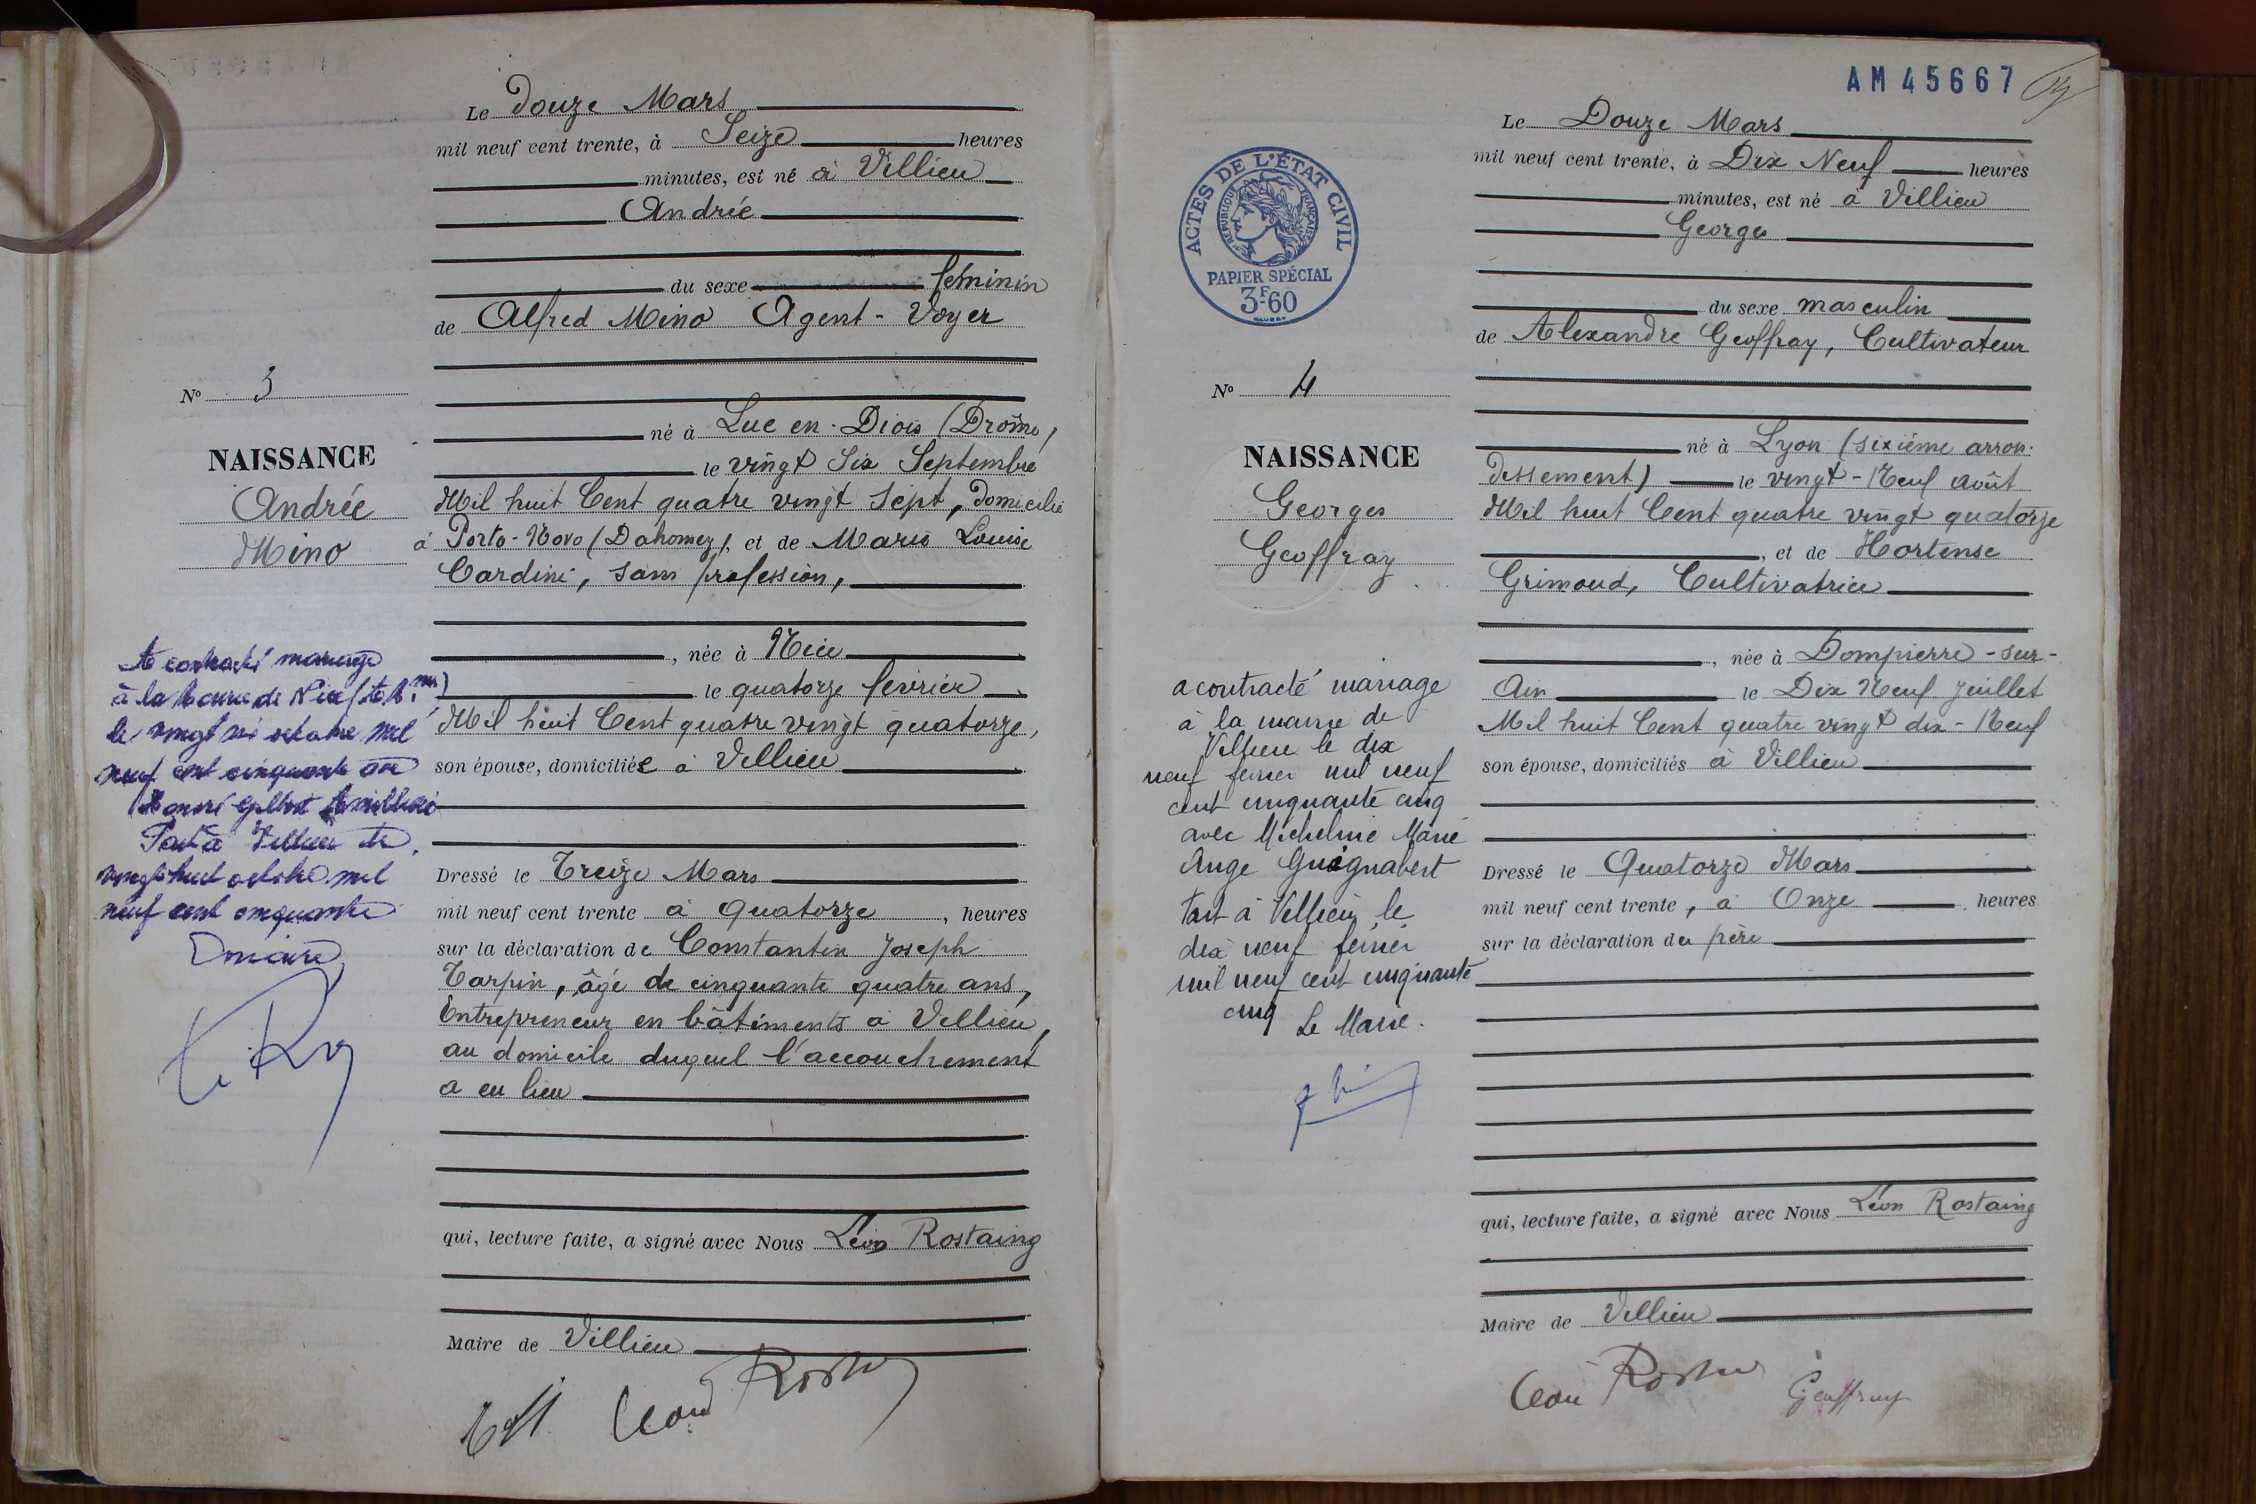 Le Douze Mars
mil neuf cent trente, à Seize heures
minutes, est né à Villieu
Andrée
du sexe féminin
de Alfred Mino Agent-Voyer
né à Luc en Diois (Drôme)
le vingt Six Septembre
Mil huit Cent quatre vingt Sept, domicilié
à Porto-Novo (Dahomey), et de Marie Louise
Cardini, sans profession,
, née à Nice
le quatorze février
Mil huit Cent quatre vingt quatorze,
son épouse, domiciliée à Villieu
Dressé le Treize Mars
mil neuf cent trente à quatorze, heures
sur la déclaration de Constantin Joseph
Tarpin, âgé de cinquante quatre ans,
Entrepreneur en bâtiments à Villieu,
au domicile duquel l'accouchement
a eu lieu
qui, lecture faite, a signé avec Nous Léon Rostaing
Maire de Villieu
Léon Rostaing
No 3
NAISSANCE
Andrée
Mino
A contracté mariage
à la Mairie de Nice (A. M.mes)
le vingt six octobre mil
neuf cent cinquante avec
Honoré Gilbert
Fait à Villieu le
vingt huit octobre mil
neuf cent cinquante
AM 45667
ACTES DE L'ÉTAT CIVIL
RÉPUBLIQUE FRANÇAISE
PAPIER SPÉCIAL
3F.60
No 4
NAISSANCE
Georges
Geoffray
a contracté mariage
à la mairie de
Villieu le dix
neuf février mil neuf
cent cinquante cinq
avec Micheline Marie
Ange Guignabert
Fait à Villieu le
dix neuf février
mil neuf cent cinquante
cinq Le Maire.
Le Douze Mars
mil neuf cent trente, à Dix Neuf heures
minutes, est né à Villieu
Georges
du sexe masculin
de Alexandre Geoffray, Cultivateur
né à Lyon (sixième arron-
dissement) le vingt-Neuf août
Mil huit Cent quatre vingt quatorze
, et de Hortense
Grimoud, Cultivatrice
, née à Dompierre-sur-
Ain le Dix Neuf Juillet
Mil huit Cent quatre vingt dix-Neuf
son épouse, domiciliés à Villieu
Dressé le Quatorze Mars
mil neuf cent trente, à Onze heures
sur la déclaration du père
qui, lecture faite, a signé avec Nous Léon Rostaing
Maire de Villieu
Léon Rostaing Geoffray